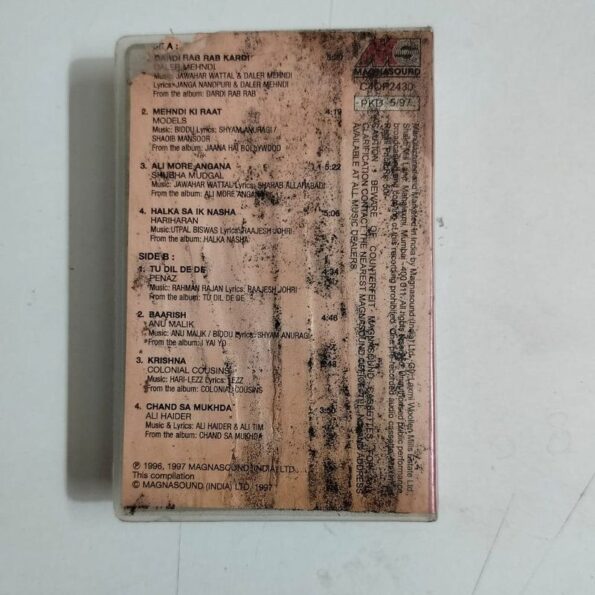 SIDE A :
DARDI RAB RAB KARDI
DALER MEHNDI
Music: JAWAHAR WATTAL & DALER MEHNDI
Lyrics: JANGA NANDPURI & DALER MEHNDI
From the album: DARDI RAB RAB
2. MEHNDI KI RAAT 4:19
MODELS
Music: BIDDU Lyrics: SHYAM ANURAGI /
SHAOIB MANSOOR
From the album: JAANA HAI BOLLYWOOD
3. ALI MORE ANGANA 5:22
SHUBHA MUDGAL
Music: JAWAHAR WATTAL Lyrics: SHARAB ALLAHABADI
From the album: ALI MORE ANGANA
4. HALKA SA IK NASHA 5:06
HARIHARAN
Music: UTPAL BISWAS Lyrics: RAAJESH JOHRI
From the album: HALKA NASHA
SIDE B :
1. TU DIL DE DE 4:34
PENAZ
Music: RAHMAN RAJAN Lyrics: RAAJESH JOHRI
From the album: TU DIL DE DE
2. BAARISH 4:46
ANU MALIK
Music: ANU MALIK / BIDDU Lyrics: SHYAM ANURAGI
From the album: I YAI YO
3. KRISHNA :48
COLONIAL COUSINS
Music: HARI-LEZZ Lyrics: LEZZ
From the album: COLONIAL COUSINS
4. CHAND SA MUKHDA
ALI HAIDER
Music & Lyrics: ALI HAIDER & ALI TIM
From the album: CHAND SA MUKHDA
℗ 1996, 1997 MAGNASOUND (INDIA) LTD.
This compilation
© MAGNASOUND (INDIA) LTD. 1997
MAGNASOUND
C4OP2430
PKD-5/97
Manufactured and Marketed in India by Magnasound (India) Ltd.
Laxmi Woollen Mills Estate, Mumbai - 400 011. All rights
of this recording prohibited.
CAUTION : BEWARE OF COUNTERFEIT MAGNASOUND CASSETTES.
CLARIFICATION CONTACT THE NEAREST MAGNASOUND ADDRESS
AVAILABLE AT ALL MUSIC DEALERS.